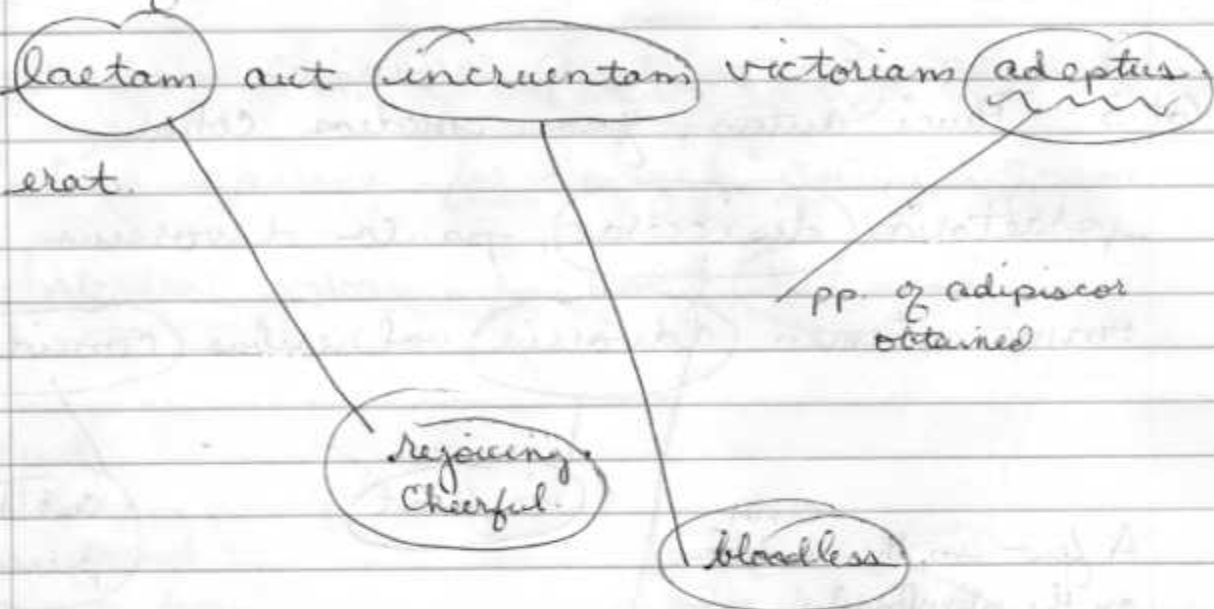 laetam aut incruentam victoriam adeptus
erat.
pp. of adipiscor
obtained
rejoicing.
Cheerful.
bloodless